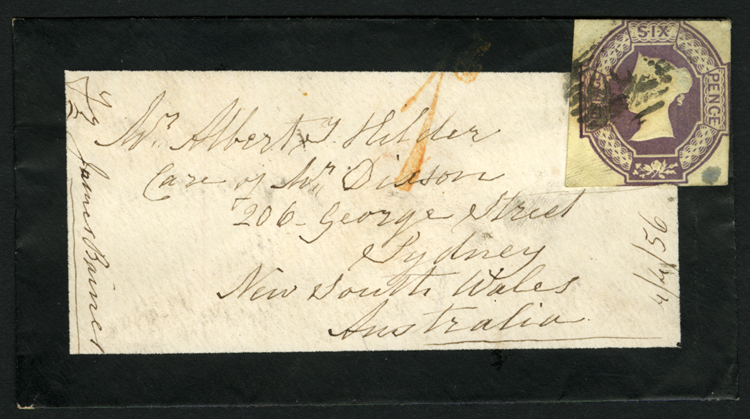 SIX
PENCE
Mr. Albert J. Hilder
Care of Mr. Dixson
206 George Street
Sydney
New South Wales
Australia
James Baines
4/4/56